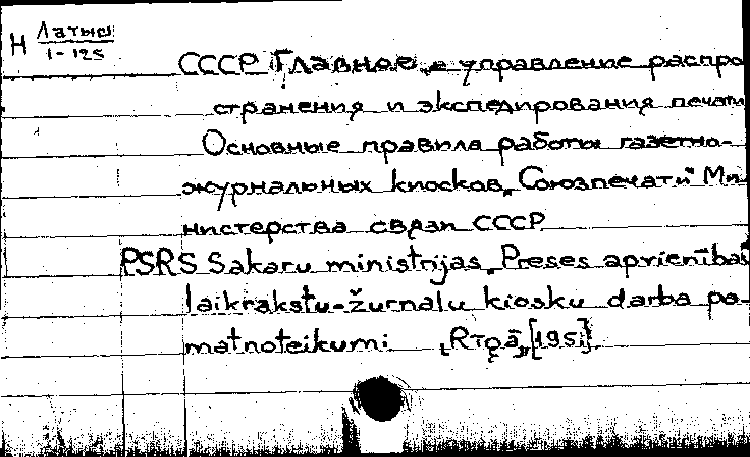 Н Латыш
1-125
СССР Главное управление распро
странения и экспедирования печати
Основные правила работы газетно-
журнальных киосков „Союзпечати" Ми-
нистерства связи СССР
PSRS Sakaru ministrijas „Preses apvienības"
laikrakstu-žurnalu kiosku darba pa-
matnoteikumi Rīgā, [195